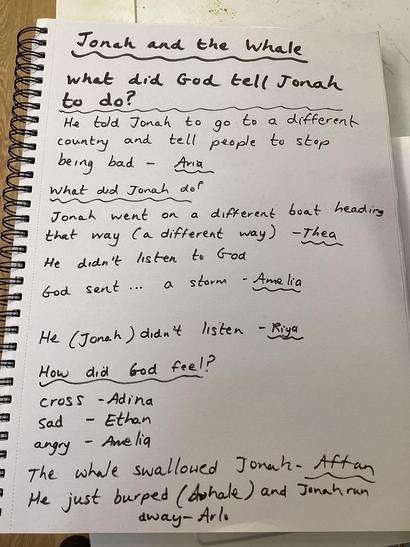 Jonah and the Whale
what did God tell Jonah
to do?
He told Jonah to go to a different
country and tell people to stop
being bad - Aria
What did Jonah do?
Jonah went on a different boat heading
that way (a different way) - Thea
He didn't listen to God
God sent ... a storm - Amelia
He (Jonah) didn't listen - Riya
How did God feel?
cross - Adina
sad - Ethan
angry - Amelia
The whale swallowed Jonah - Affan
He just burped (whale) and Jonah run
away - Arlo